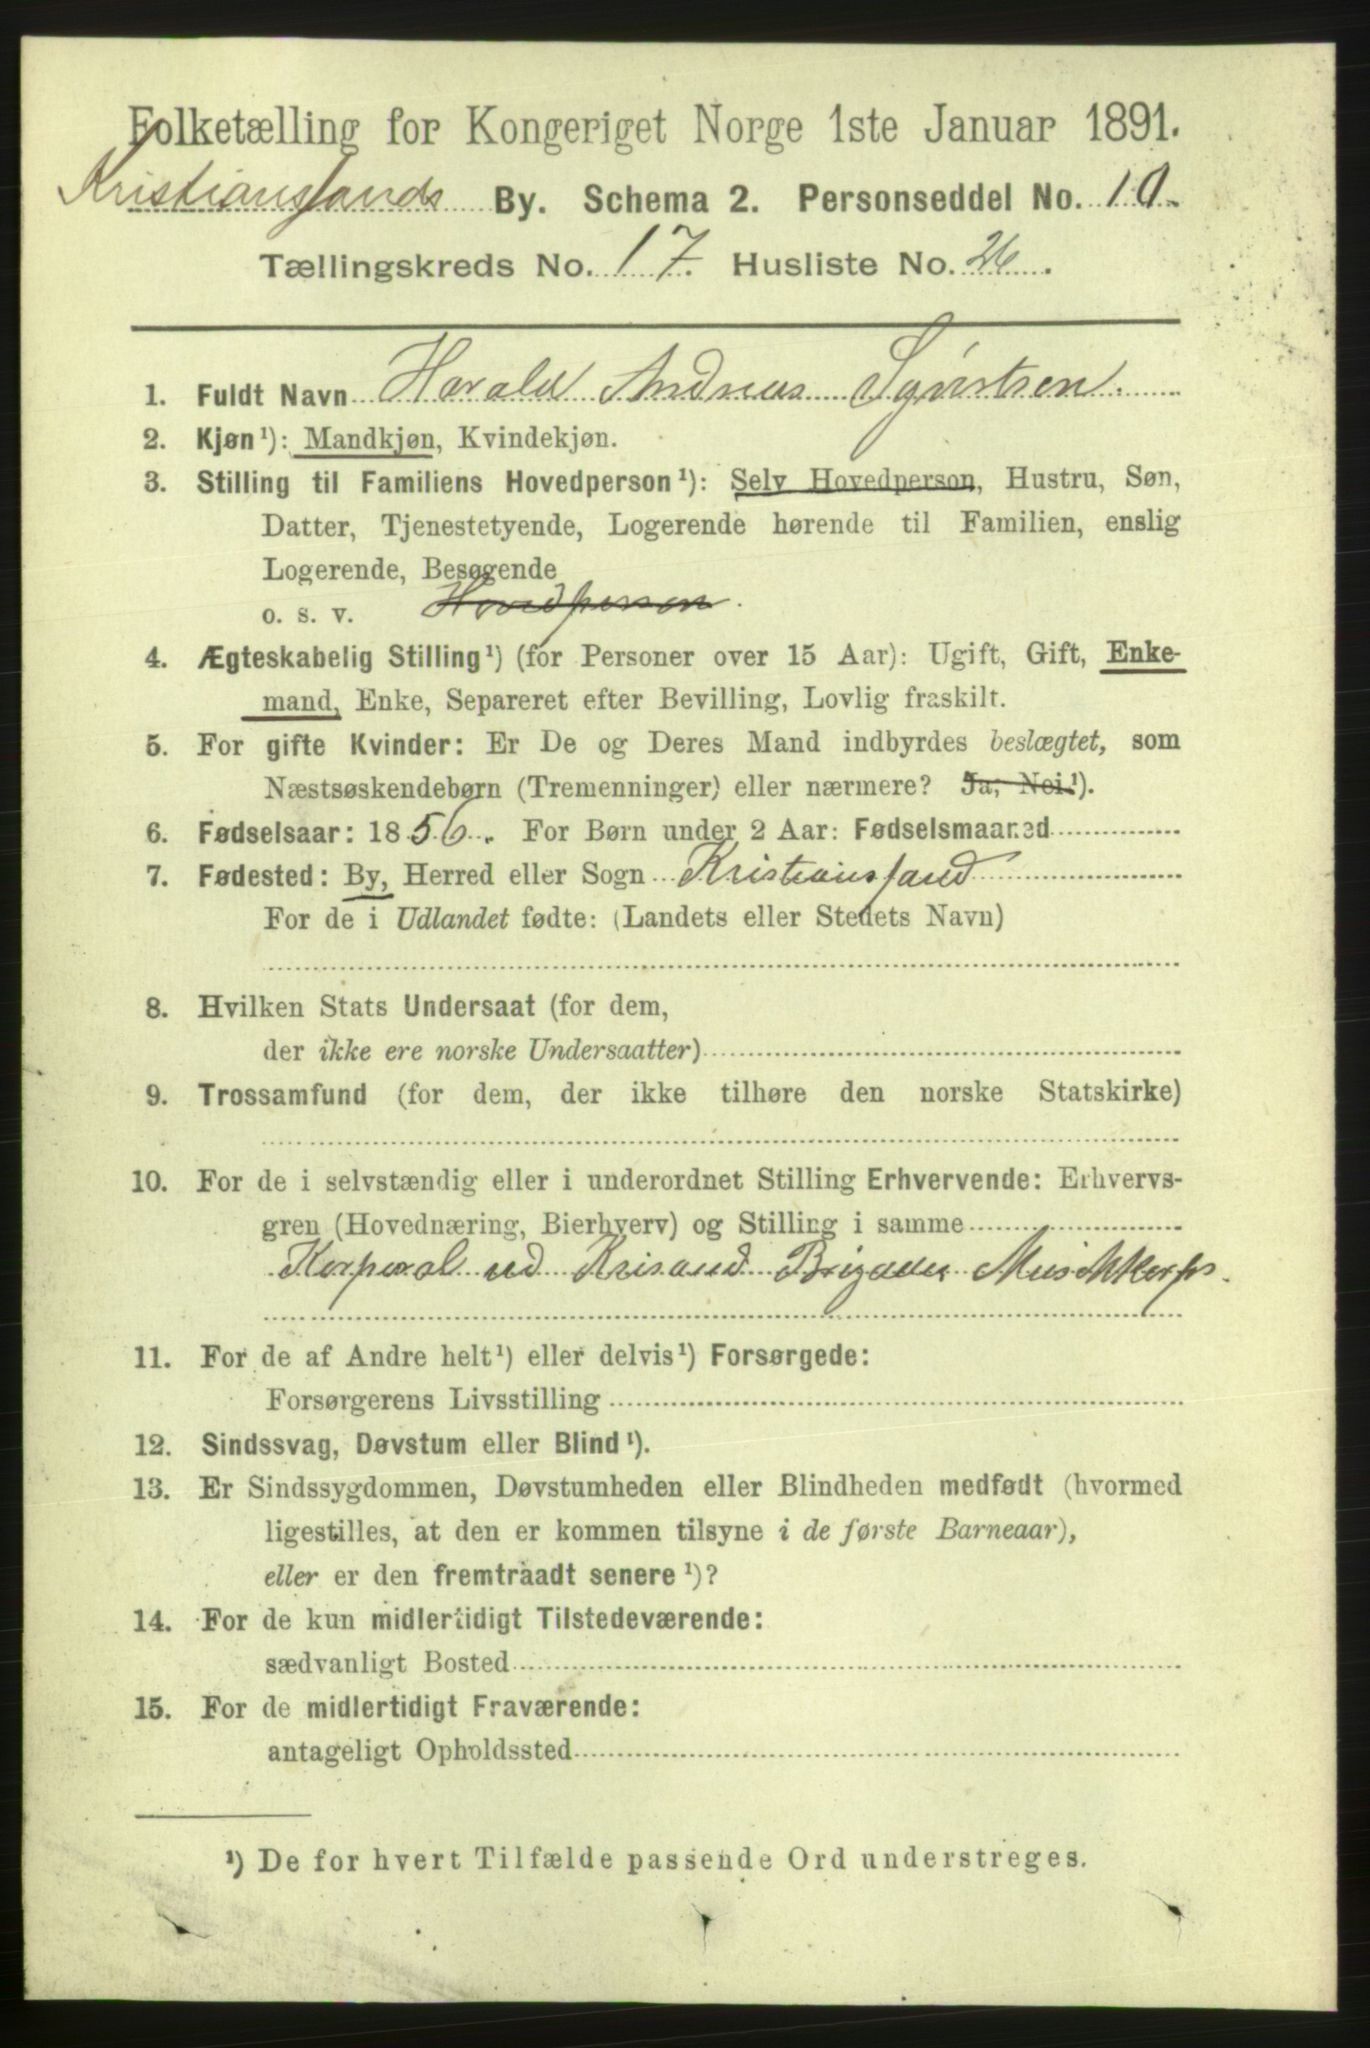 Folketælling for Kongeriget Norge 1ste Januar 1891.
Kristianssands By. Schema 2. Personseddel No. 10.
Tællingskreds No. 17. Husliste No. 26.
1. Fuldt Navn Harald Andreas Syvertsen.
2. Kjøn¹): Mandkjøn, Kvindekjøn.
3. Stilling til Familiens Hovedperson¹): Selv Hovedperson, Hustru, Søn,
Datter, Tjenestetyende, Logerende hørende til Familien, enslig
Logerende, Besøgende
o. s. v. Hovedperson.
4. Ægteskabelig Stilling¹) (for Personer over 15 Aar): Ugift, Gift, Enke-
mand, Enke, Separeret efter Bevilling, Lovlig fraskilt.
5. For gifte Kvinder: Er De og Deres Mand indbyrdes beslægtet, som
Næstsøskendebørn (Tremenninger) eller nærmere? Ja, Nei.¹).
6. Fødselsaar: 1856. For Børn under 2 Aar: Fødselsmaaned
7. Fødested: By, Herred eller Sogn Kristianssand
For de i Udlandet fødte: (Landets eller Stedets Navn)
8. Hvilken Stats Undersaat (for dem,
der ikke ere norske Undersaatter)
9. Trossamfund (for dem, der ikke tilhøre den norske Statskirke)
10. For de i selvstændig eller i underordnet Stilling Erhvervende: Erhvervs-
gren (Hovednæring, Bierhverv) og Stilling i samme
Korporal ved Krisand Brigades Musikkorps.
11. For de af Andre helt¹) eller delvis¹) Forsørgede:
Forsørgerens Livsstilling
12. Sindssvag, Døvstum eller Blind¹).
13. Er Sindssygdommen, Døvstumheden eller Blindheden medfødt (hvormed
ligestilles, at den er kommen tilsyne i de første Barneaar),
eller er den fremtraadt senere¹)?
14. For de kun midlertidigt Tilstedeværende:
sædvanligt Bosted
15. For de midlertidigt Fraværende:
antageligt Opholdssted
¹) De for hvert Tilfælde passende Ord understreges.